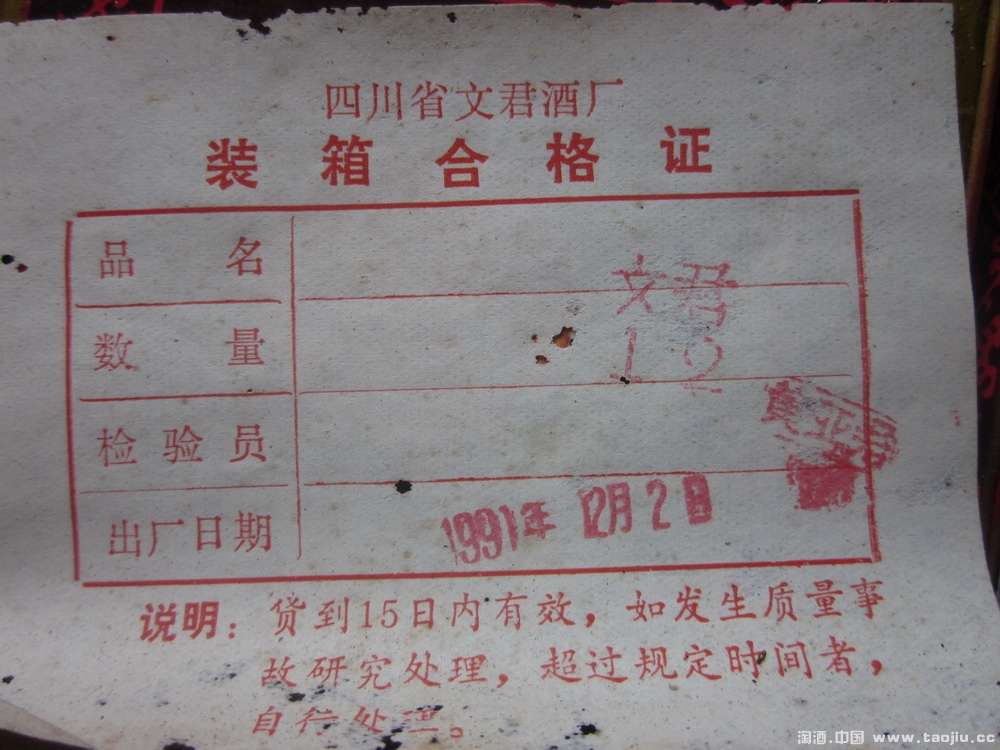 四川省文君酒厂
装箱合格证
品名 文君
数量 12
检验员
出厂日期 1991年12月2日
说明：货到15日内有效，如发生质量事
故研究处理，超过规定时间者，
自行处理。
淘酒.中国 www.taojiu.cc